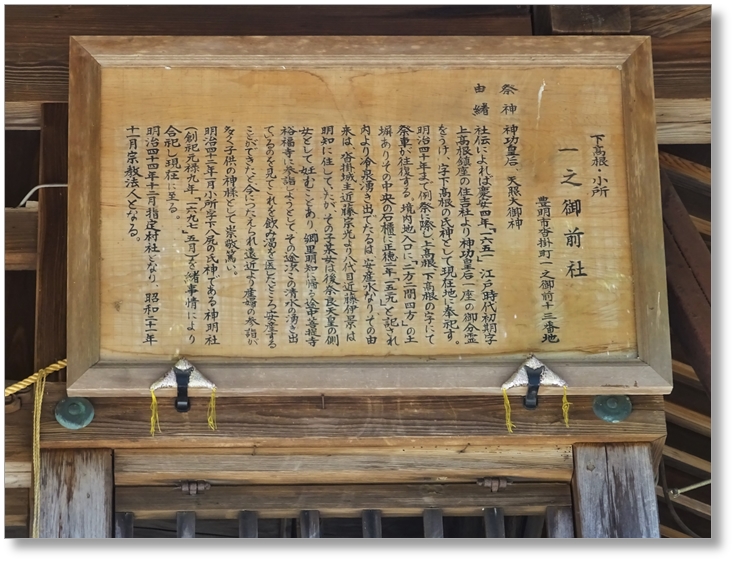 下高根・小所
一之御前社
豊明市沓掛町一之御前十三番地
祭神 神功皇后 天照大御神
由緒
社伝によれば慶安四年「一六五一」江戸時代初期字
上高根鎮座の住吉社より神功皇后一座の御分霊
をうけ、字下高根の氏神として現在地に奉祀す。
明治四十年まで例祭に際し上高根、下高根の字にて
祭車が往復する。境内地入口に「一方二間四方」の土
塀ありその中央の石櫃に正穂二年「五九」と記され
内より冷泉湧き出てたるは、安産水なりその由
来は、沓掛城主近藤宗光より八代目近藤伊景は
明知に住していたが、その子某女は後奈良天皇の側
女として妊むことあり、郷里明知に帰る途中菩提寺
裕福寺に参詣しようとして、その途次この清水の湧き出
ているのを見てこれを飲み渇を医したところ、安産する
ことができたと今につたえられ遠近より産婦の参詣が
多く子供の神様として崇敬篤い。
明治四十二年一月小所字下八尻の氏神である神明社
(創祀元禄九年「一六九七」五月)を諸事情により
合祀し現在に至る。
明治四十四年十二月指定村社となり、昭和二十一年
十一月宗教法人となる。